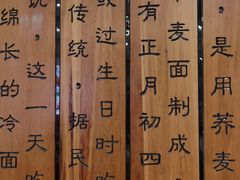 ，是用荞麦
麦面制成，
有正月初四
过生日时吃
传统，据民
说，这一天吃
绵长的冷面